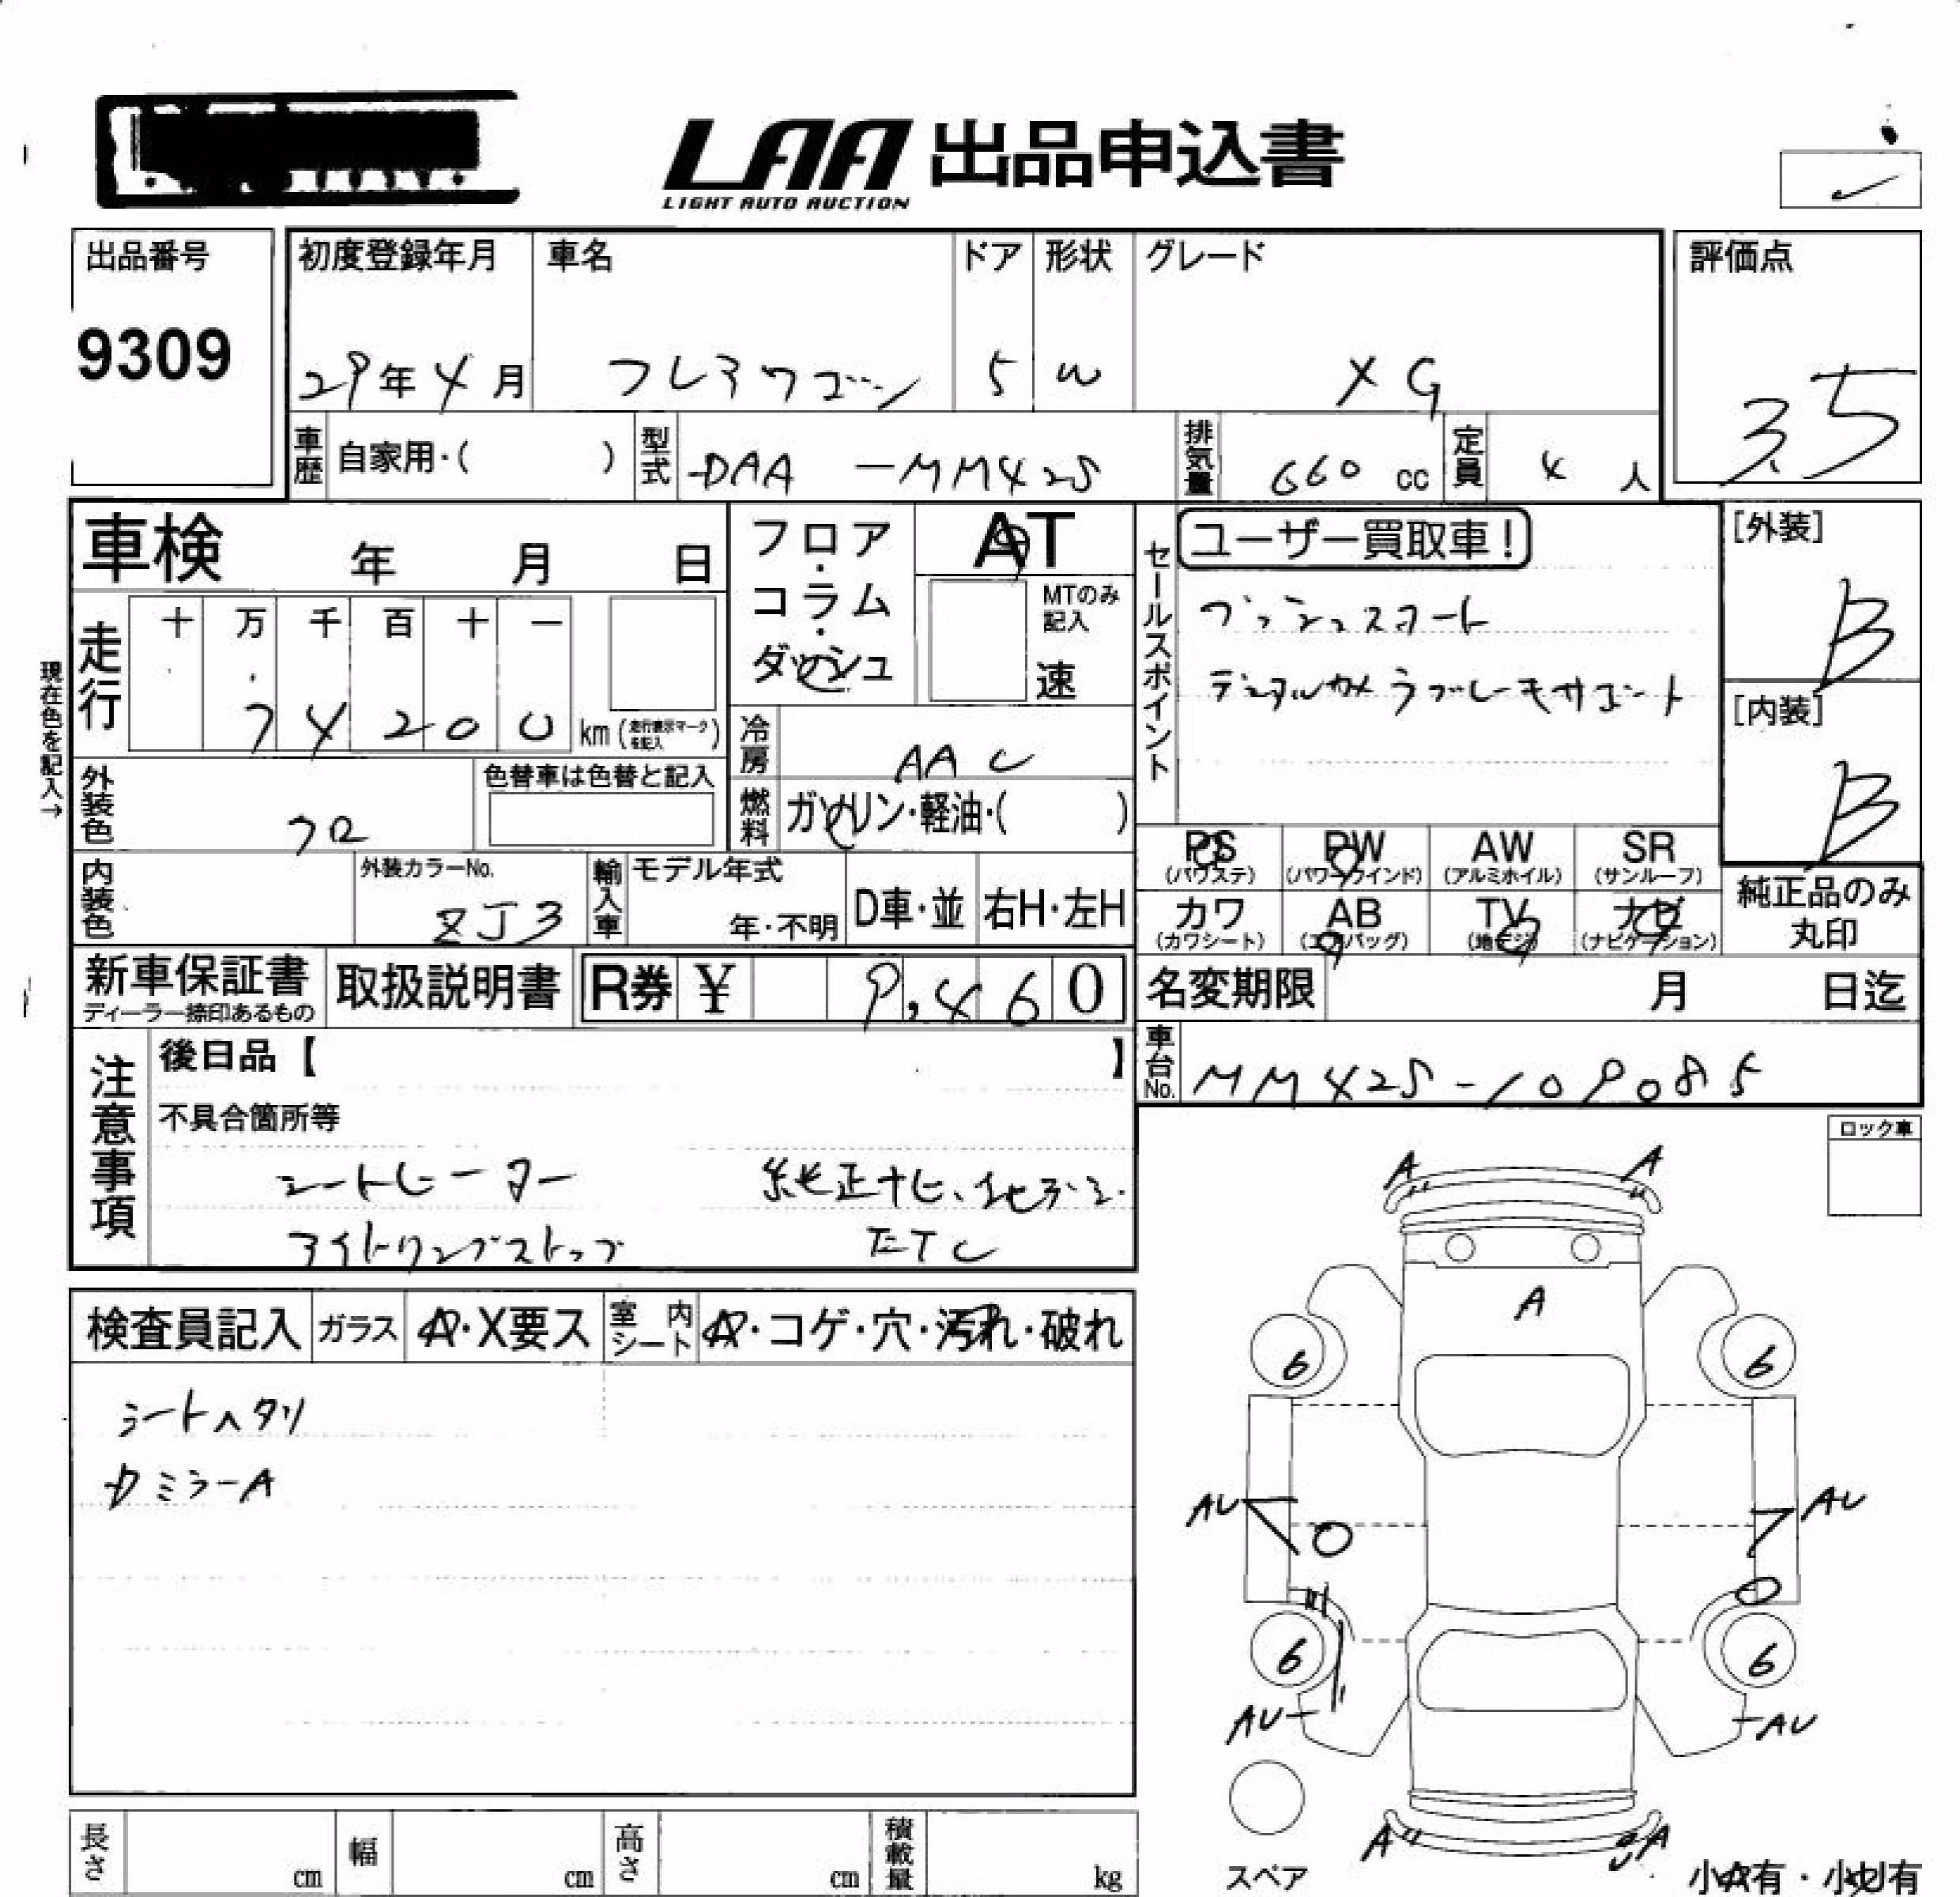 LAA 出品申込書
LIGHT AUTO AUCTION
出品番号
9309
初度登録年月
29年4月
車名
フレアワゴン
ドア
5
形状
W
グレード
XG
評価点
3.5
車歴
自家用・( )
型式
DAA-MM42S
排気量
660 cc
定員
4 人
車検 年 月 日
現在色を記入→
走行
十 万 千 百 十 一
7 4 2 0 0 km (走行表示マークを記入)
フロア・コラム・ダッシュ
AT
MTのみ記入
速
セールスポイント
ユーザー買取車!
プッシュスタート
デュアルカメラブレーキサポート
[外装]
B
[内装]
B
冷房
AAC
燃料
ガソリン・軽油・( )
外装色
クロ
色替車は色替と記入
内装色
外装カラーNo.
ZJ3
輸入車
モデル年式
年・不明
D車・並
右H・左H
PS
(パワステ)
PW
(パワーウインド)
AW
(アルミホイル)
SR
(サンルーフ)
カワ
(カワシート)
AB
(エアバッグ)
TV
(地デジ)
ナビ
(ナビゲーション)
純正品のみ
丸印
新車保証書
ディーラー捺印あるもの
取扱説明書
R券 ¥ 9,460
名変期限 月 日迄
車台No.
MM42S-109085
注意事項
後日品【 】
不具合箇所等
シートヒーター 純正ナビ、地デジ.
アイドリングストップ ETC
ロック車
検査員記入
ガラス
A・X要ス
室内シート
A・コゲ・穴・汚れ・破れ
シートヘタリ
ミラーA
A A
A
6 6
AU AU
6 6
AU AU
A A
スペア
小A有・小U有
長さ cm
幅 cm
高さ cm
積載量 kg